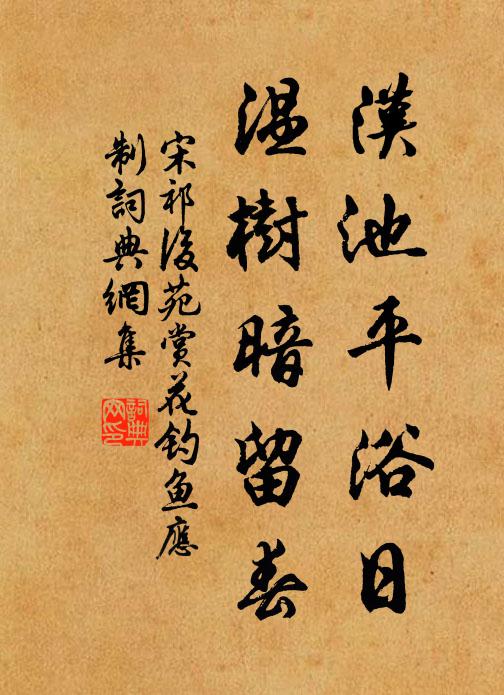 漢池平浴日
温樹暗留春
宋祁後苑賞花釣魚應
制詞典網集
詞典
网印